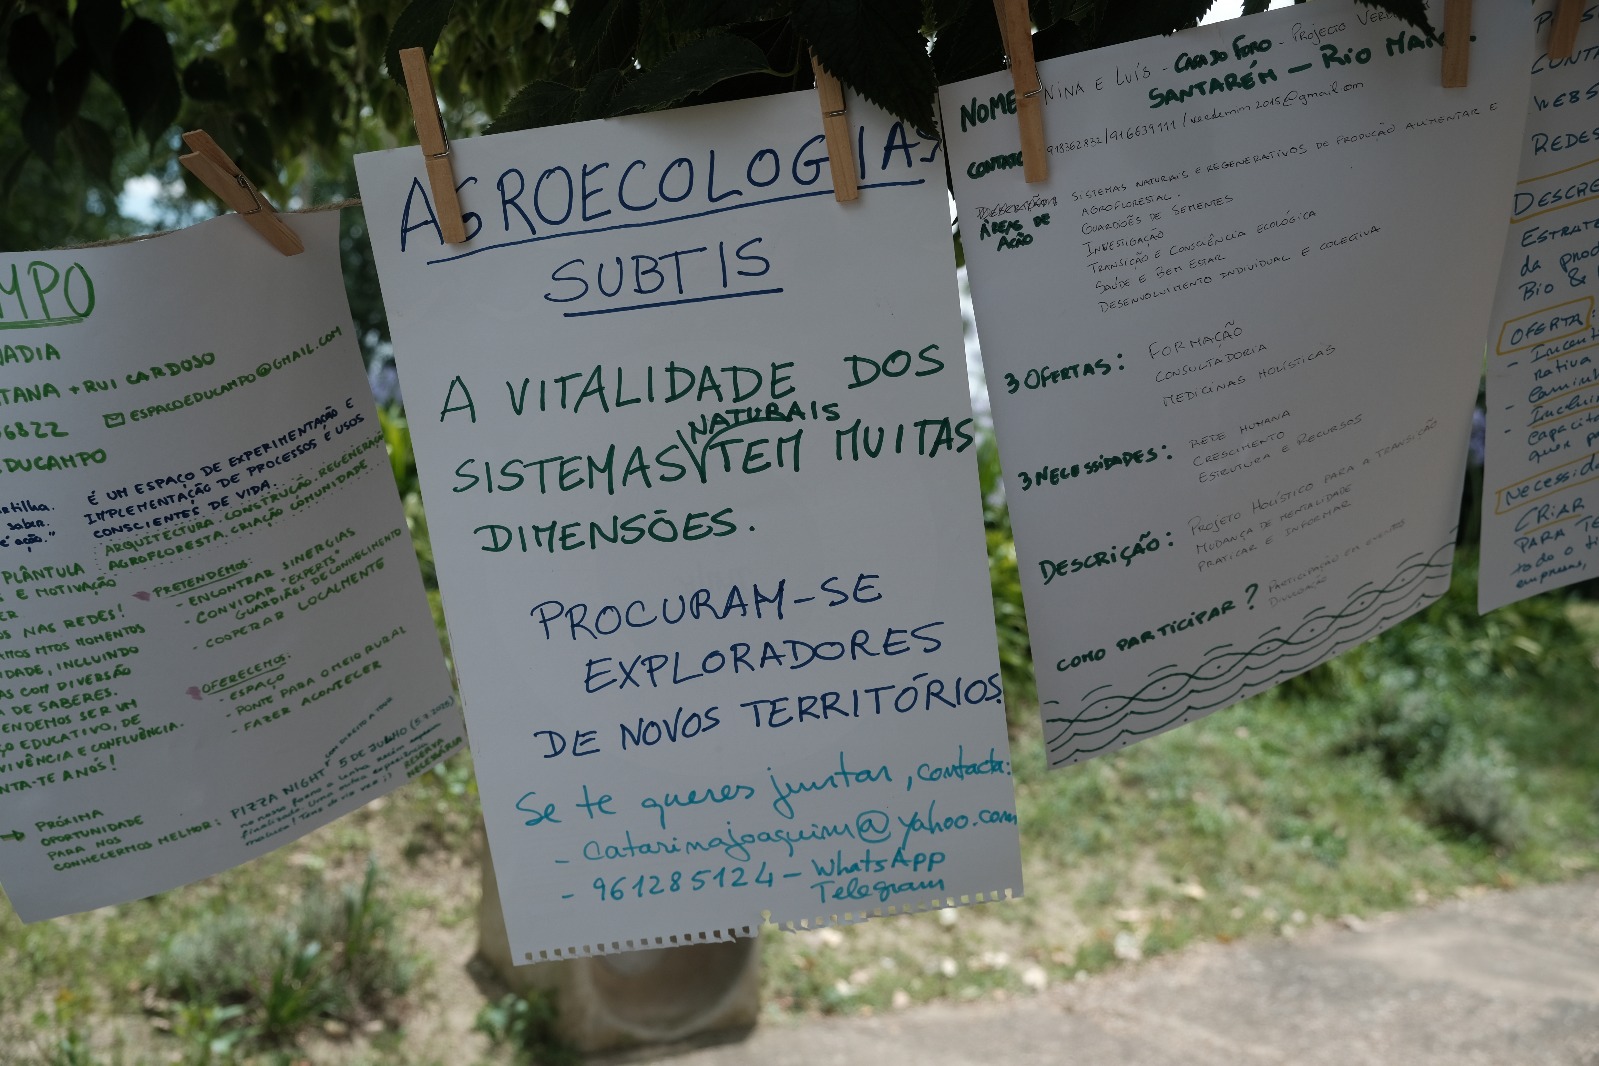 MPO
ADIA
TANA + RUI CARDOSO
6822
ESPACOEDUCAMPO@GMAIL.COM
DUCAMPO
É UM ESPAÇO DE EXPERIMENTAÇÃO E
IMPLEMENTAÇÃO DE PROCESSOS E USOS
CONSCIENTES DE VIDA.
ARQUITECTURA. CONSTRUÇÃO. REGENERAÇÃO
AGROFLORESTA. CRIAÇÃO. COMUNIDADE.
artilha.
saber.
é ação."
PLÂNTULA
S E MOTIVAÇÃO
ER
OS NAS REDES!
AMOS MTOS MOMENTOS
IDADE, INCLUINDO
AS COM DIVERSÃO
A DE SABERES.
ENDEMOS SER UM
ÇO EDUCATIVO, DE
VIVÊNCIA E CONFLUÊNCIA.
NTA-TE A NÓS!
PRETENDEMOS:
- ENCONTRAR SINERGIAS
- CONVIDAR "EXPERTS"
GUARDIÃES DE CONHECIMENTO
- COOPERAR LOCALMENTE
OFERECEMOS:
- ESPAÇO
- PONTE PARA O MEIO RURAL
- FAZER ACONTECER
→ PRÓXIMA
OPORTUNIDADE
PARA NOS
CONHECERMOS MELHOR:
PIZZA NIGHT 5 DE JULHO
RESERVA
NECESSÁRIA
AGROECOLOGIAS
SUBTIS
A VITALIDADE DOS
SISTEMAS NATURAIS TEM MUITAS
DIMENSÕES.
PROCURAM-SE
EXPLORADORES
DE NOVOS TERRITÓRIOS
Se te queres juntar, contacta:
- catarinajoaquim@yahoo.com
- 961285124 - WhatsApp
Telegram
NOME NINA E LUÍS - CASA DO FORO - PROJECTO
SANTARÉM - RIO MAIOR
CONTATO 918362832/916639111/
ÁREAS DE
AÇÃO
SISTEMAS NATURAIS E REGENERATIVOS DE PRODUÇÃO ALIMENTAR E
AGROFLORESTAL
GUARDIÕES DE SEMENTES
INVESTIGAÇÃO
TRANSIÇÃO E CONSCIÊNCIA ECOLÓGICA
SAÚDE E BEM ESTAR
DESENVOLVIMENTO INDIVIDUAL E COLECTIVA
3 OFERTAS: FORMAÇÃO
CONSULTADORIA
MEDICINAS HOLÍSTICAS
3 NECESSIDADES: REDE HUMANA
CRESCIMENTO RECURSOS
ESTRUTURA E RECURSOS
DESCRIÇÃO: PROJETO HOLÍSTICO PARA A TRANSIÇÃO
MUDANÇA DE MENTALIDADE
PRATICAR E INFORMAR
COMO PARTICIPAR? PARTICIPAÇÃO EM EVENTOS
DIVULGAÇÃO
CONTA
WEBS
REDES
DESCRI
ESTRATE
da prod
BIO &
OFERTA:
- Incent
rativa
-
- Inclui
capacita
que p
Necessid
CRIAR
PARA TE
todo o
empresas,